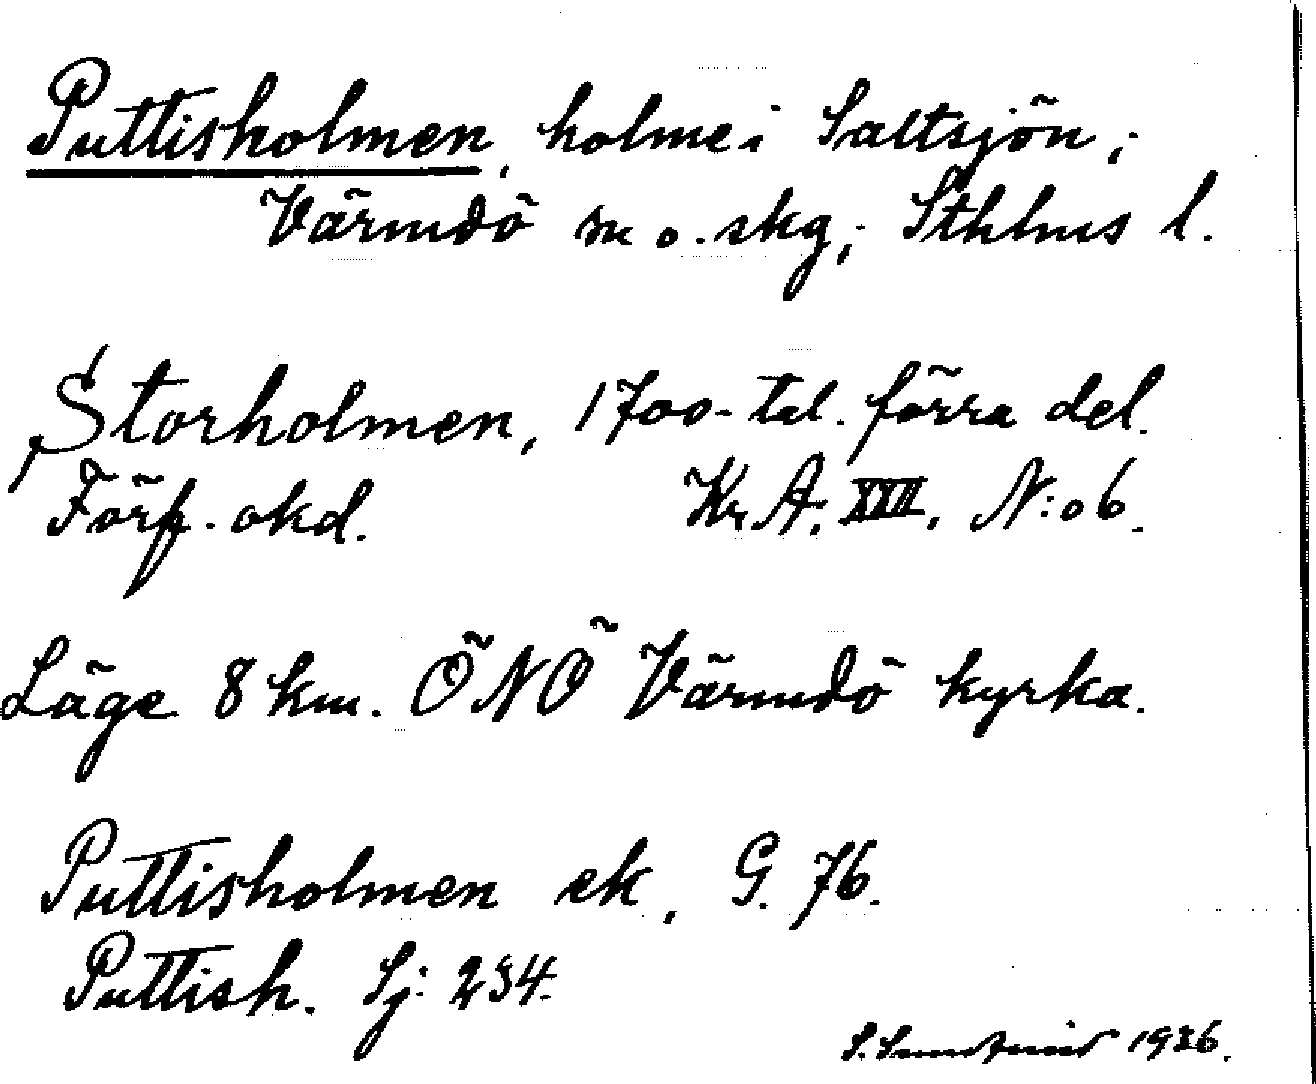 Puttisholmen, holme i Saltsjön;
Värmdö sn o. skg; Sthlms l.
Storholmen, 1700-tal. förra del.
Förf. okd. Kr A. XXII. N:o 6.
Läge 8 km. ÖNÖ Värmdö kyrka.
Puttisholmen ek, G. 76.
Puttish. Sj: 234.
S. 1936.